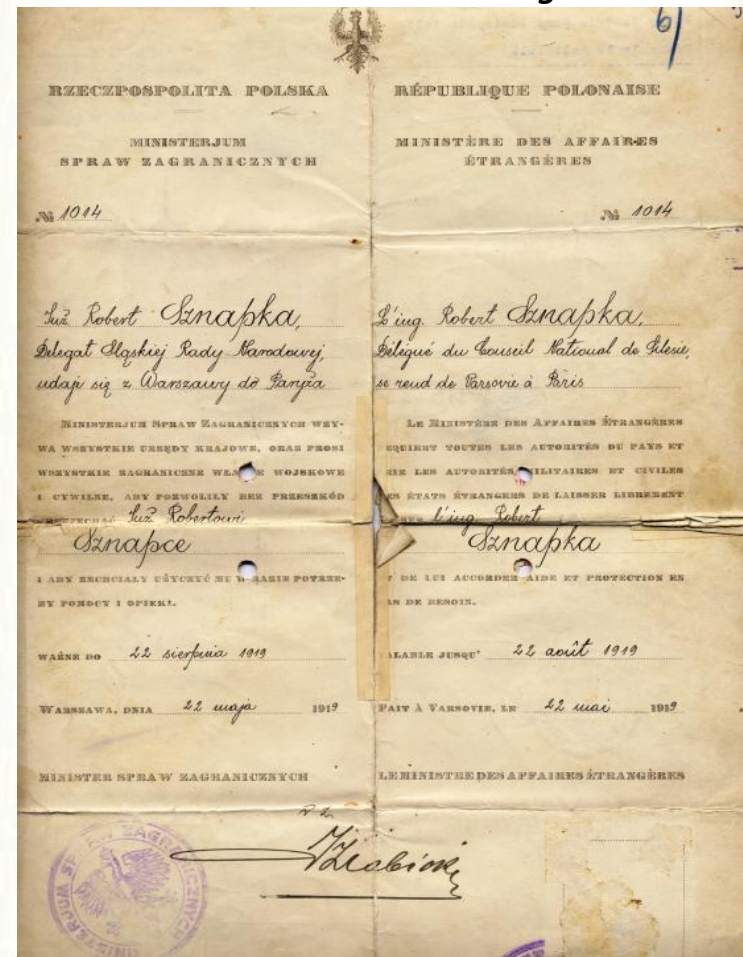 6)
RZECZPOSPOLITA POLSKA
MINISTERJUM
SPRAW ZAGRANICZNYCH
№ 1014
Inż Robert Sznapka,
Delegat Śląskiej Rady Narodowej,
udaje się z Warszawy do Paryża
MINISTERJUM SPRAW ZAGRANICZNYCH WZY-
WA WSZYSTKIE URZĘDY KRAJOWE, ORAZ PROSI
WSZYSTKIE ZAGRANICZNE WOJSKOWE
I CYWILNE, ABY POZWOLIŁY BEZ PRZESZKÓD
Inż Robertowi
Sznapce
I ABY ZECHCIAŁY UŻYCZYĆ MU W RAZIE POTRZE-
BY POMOCY I OPIEKI.
WAŻNE DO 22 sierpnia 1919
WARSZAWA, DNIA 22 maja 1919
MINISTER SPRAW ZAGRANICZNYCH
RÉPUBLIQUE POLONAISE
MINISTÈRE DES AFFAIRES
ÉTRANGÈRES
№ 1014
L'ing. Robert Sznapka,
Délégué du Conseil National de Silesie,
se rend de Varsovie à Paris
LE MINISTÈRE DES AFFAIRES ÉTRANGÈRES
EQUIERT TOUTES LES AUTORITÉS DU PAYS ET
RIE LES AUTORITÉS MILITAIRES ET CIVILES
ES ÉTATS ÉTRANGERS DE LAISSER LIBREMENT
l'ing. Robert
Sznapka
T DE LUI ACCORDER AIDE ET PROTECTION EN
AS DE BESOIN.
ALABLE JUSQU' 22 août 1919
FAIT À VARSOVIE, LE 22 mai 1919
LE MINISTRE DES AFFAIRES ÉTRANGÈRES